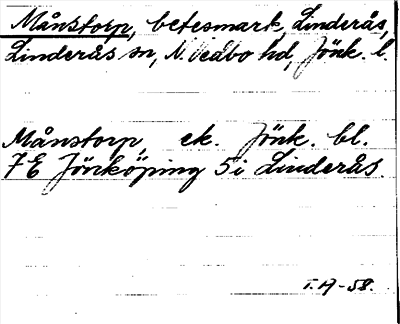 Månstorp, betesmark, Linderås,
Linderås sn, N. Vedbo hd, Jönk. l.
Månstorp, ek. Jönk. bl.
7E Jönköping 5i Linderås.
T.A-58.